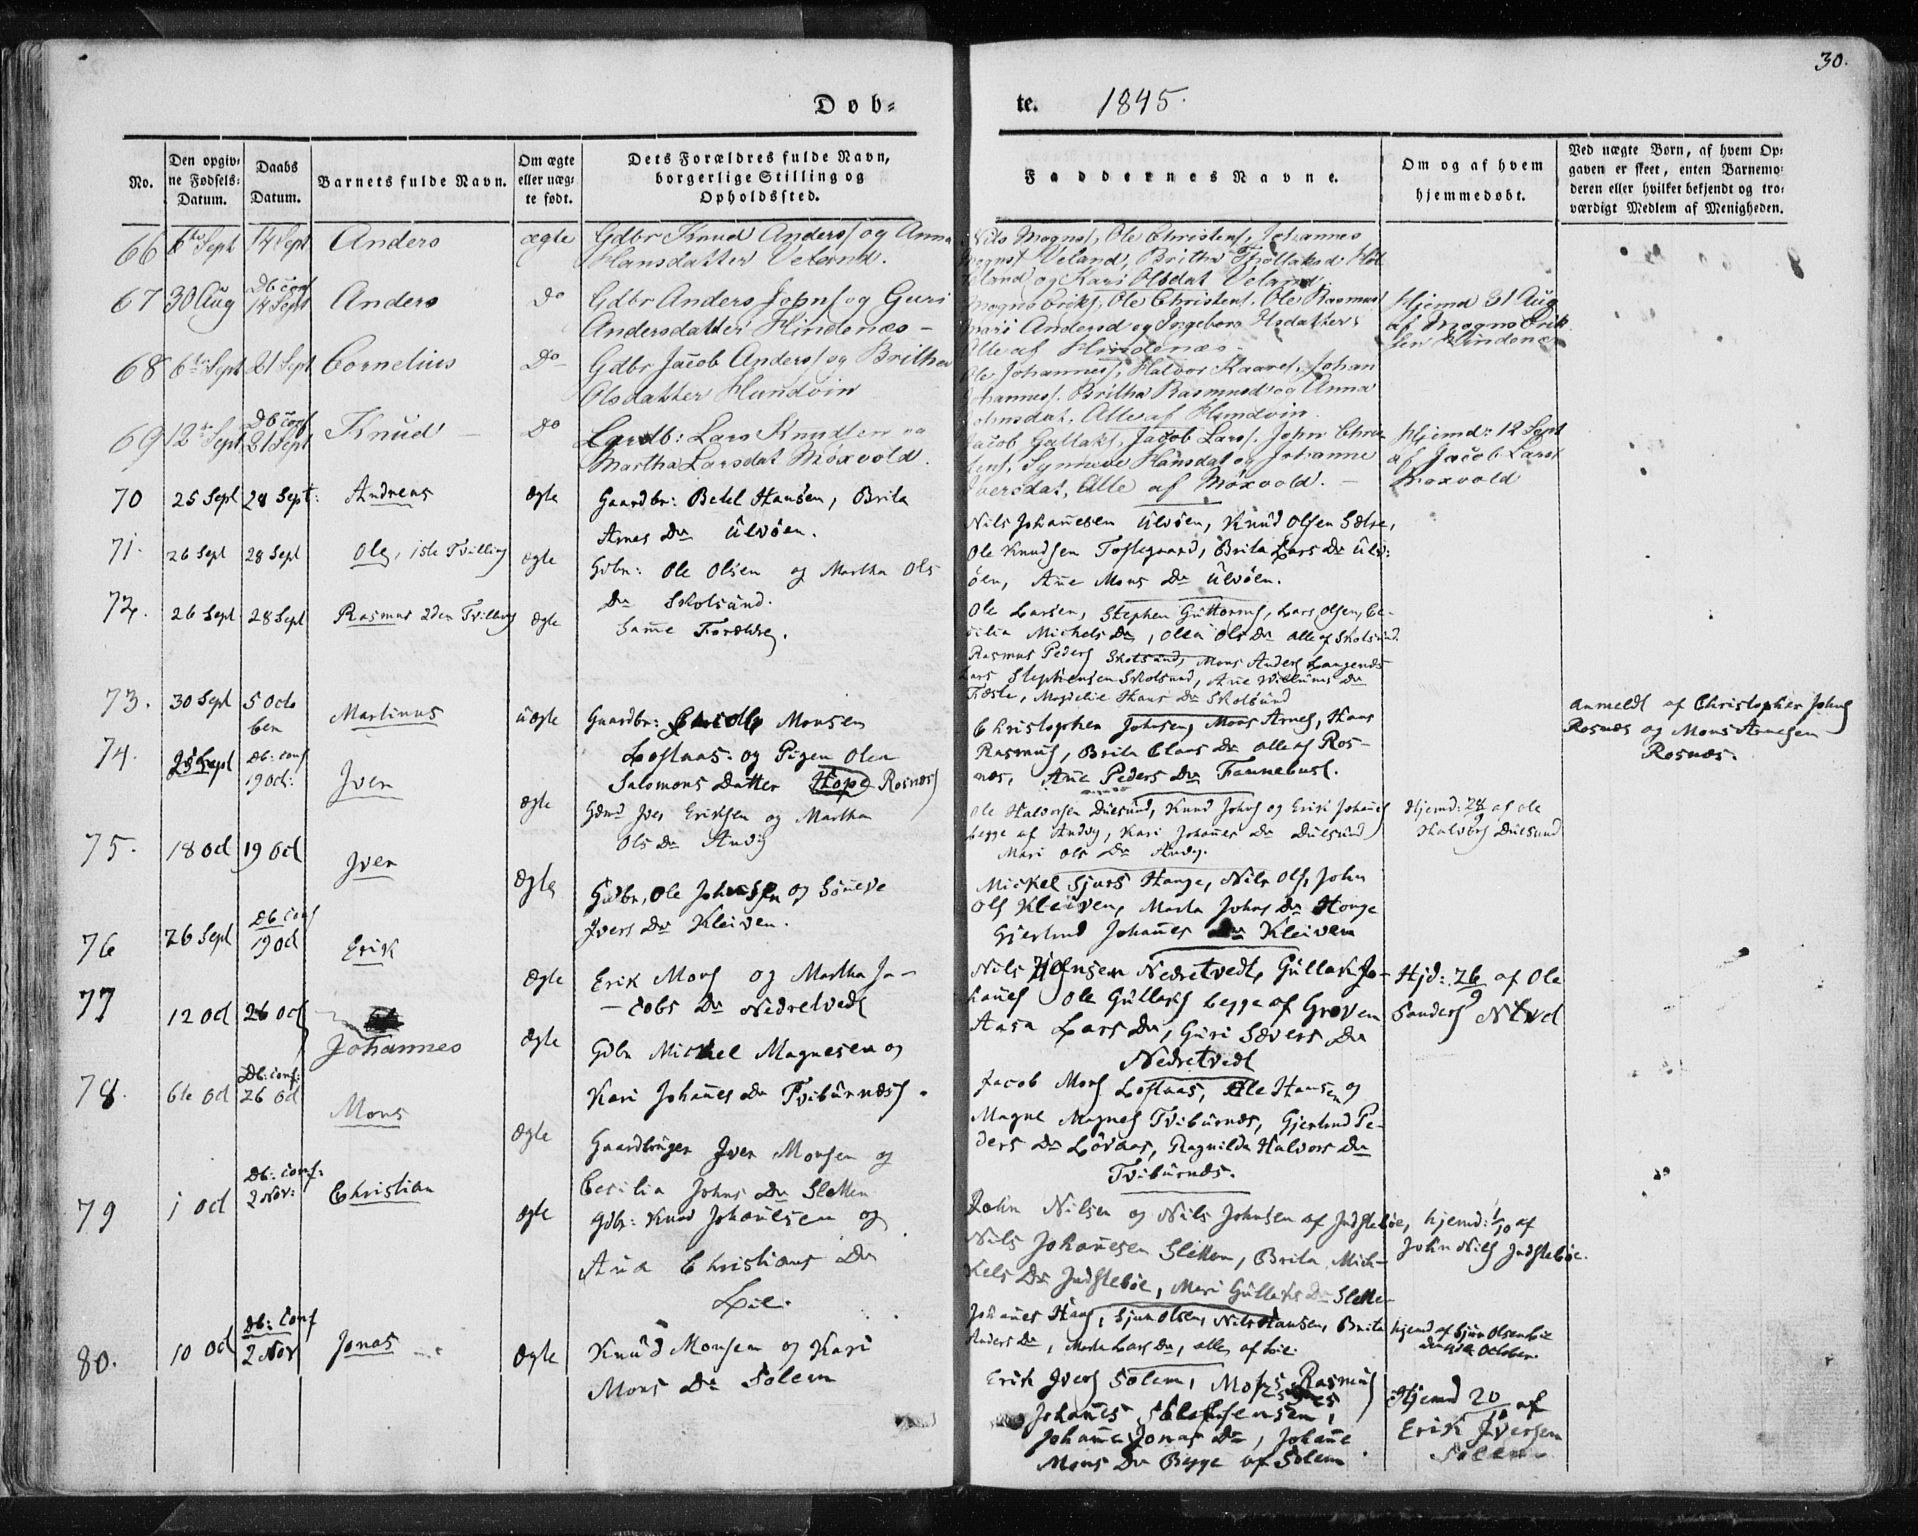 30.
Døb-
te. 1845.
No.
Den opgiv-
ne Fødsels-
Datum.
Daabs
Datum.
Barnets fulde Navn.
Om ægte
eller uæg-
te født.
Dets Forældres fulde Navn,
borgerlige Stilling og
Opholdssted.
Faddernes Navne.
Om og af hvem
hjemmedøbt.
Ved uægte Børn, af hvem Op-
gaven er skeet, enten Barnemo-
deren eller hvilket bekjendt og tro-
værdigt Medlem af Menigheden.
66 6te Sept 14 Sept Anders ægte Gdbr Knud Anders. og Anna
Hansdatter Veland.
Nils Mognes, Ole Christens, Johannes
Veland, Britha
og Kari Olsdat Veland.
67 30 Aug Db conf 14 Sept Anders Do Gdbr Anders Johns og Guri
Andersdatter Hindenæs
Mogns Eriks, Ole Christens. Ole Rasmus
Mari Andersd og Ingeborg
Alle af Hindenæs.
Hjemd 31 Aug
af Mogns Erik
sen Hindenæs
68 6te Sept 21 Sept Cornelius Do Gdbr Jacob Anders og Britha
Olsdatter Hundvin
Ole Johannes, Halvor Kaares, Johan
Johannes. Britha Rasmusd og Anna
Johnsdat. Alle af Hundvin.
69 12te Sept Db conf 21 Sept Knud Do Lars Knudsen og
Martha Larsdat Møxvold.
Jacob Gullaks, Jacob Lars. John Chri
stens. Synneve Hansdat og Johanne
Iversdat, Alle af Møxvold.
Hjemd: 12 Sept
af Jacob Lars
Moxvold
70 25 Sept 28 Sept: Andreas Ægte Gaardbr: Betel Hansen, Brita
Arnes Dr Ulvøen.
Nils Johanesen Ulvøen, Knud Olsen Sæbe,
Ole Knudsen Toftegaard, Brita Lars Dr Ulv-
øen, Ane Mons Dr Ulvøen.
71. 26 Sept 28 Sept Ole, 1ste Tvilling ægte Gdbr: Ole Olsen og Martha Ols
Dr Skolsund.
Ole Larsen, Stephen Guttorms, Lars Olsen, Ce-
cilia Michels Dr, Olea Ols Dr alle af Skolsund.
72. 26 Sept 28 Sept Rasmus 2den Tvilling Ægte Same Forældre.
Rasmus Peders Skolsund, Mons Anders Langenæs
Lars Stephensen Skolsund, Ane Willums Dr
Magdelie Hans Dr Skolsund
73. 30 Sept 5 Octo
ber Martinus uægte Gaardbr: Monsen
Loftaas: og Pigen Olea
Salomons Datter Hope Rosnæs
Christopher Johnsen, Mons Arnes, Hans
Rasmus, Brita Claus Dr alle af Ros-
næs, Ane Peders Dr Fannebust.
anmeldt af Christopher Johns
Rosnæs og Mons Arnesen
Rosnæs.
74. 28 Sept Db: conf 19 Oct: Iver ægte Gdmd Iver Eriksen og Martha
Ols Dr Andvig
Ole Halvorsen Duesund, Knud Johs og Erik Johanes
begge af Andvig, Kari Johanes Dr Duesund
Mari Ols Dr Andvig.
Hjemd: 28/9 af Ole
Halvors Duesund
75. 18 Oct 19 Oct Iver Ægte Gdbr, Ole Johnsen og Sønneve
Ivers Dr Kleiven.
Mickel Sjurs Hauge, Nils Ols, John
Ols Kleiven, Marta Johns Dr Houge
Gjertrud Johanes Dr Kleiven
76 26 Sept Db: conf 19 Oct Erik Ægte Erik Mons og Martha Ja-
cobs Dr Nedretvedt
Nils Nedretvedt, Gullak Jo-
hanes Ole Gullaks begge af Groven
Aasa Lars Dr, Guri Sævers Dr
Nedretvedt
Hjd: 26/9 af Ole
Sanders
77 12 Oct 26 Oct Johannes ægte Gdbr Mickel Magnesen og
Kari Johanes Dr Tviburnæs.
Jacob Mons Loftaas, Ole Hansen og
Magne Magnes Tviburnæs, Gjertrud Pe-
ders Dr Løvaas, Ragnilda Halvors Dr
Tviburnæs.
78. 6te Oct Db: conf: 26 Oct Mons ægte Gaardbruger Iver Monsen og
Cecilia Johns Dr Sletten
John Nilsen og Nils Johnsen af Indstebøe,
Nils Johanesen Sletten, Brita Mick-
els Dr Indstebøe, Mari Gullaks Dr Slette-
hjemd: 1/10 af
John Nils Indstebøe.
79 1 Oct Db: conf: 2 Nov: Christian ægte Gdbr: Knud Johanesen og
Ana Christians Dr
Lie.
Johanes Hans, Sjur Olsen, Nils Hansen, Brita
Anders Dr, Marta Lars Dr, alle af Lie.
hjemd af Sjur Olsen Lie
October.
80. 10 Oct Db: Conf 2 Nov Jonas Ægte Knud Monsen og Kari
Mons Dr Solem
Erik Ivers Solem, Mons Rasmus
Johanes
Johanne Jonas Dr, Johane
Mons Dr Begge af Solem
Hjemd 20/10 af
Erik Iversen
Solem